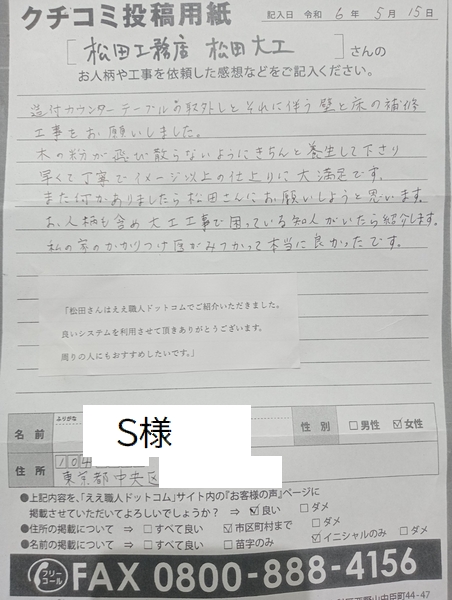 クチコミ投稿用紙
記入日 令和 6 年 5 月 15 日
[松田工務店 松田大工]さんの
お人柄や工事を依頼した感想などをご記入ください。
造付カウンターテーブルの取外しとそれに伴う壁と床の補修
工事をお願いしました。
木の粉が飛び散らないようにきちんと養生して下さり
早くて丁寧でイメージ以上の仕上りに大満足です。
また何かありましたら松田さんにお願いしようと思います。
お人柄も含め大工工事で困っている知人がいたら紹介します。
私の家のかかりつけ医がみつかって本当に良かったです。
「松田さんはええ職人ドットコムでご紹介いただきました。
良いシステムを利用させて頂きありがとうございます。
周りの人にもおすすめしたいです。」
ふりがな
名前 S様 性別 □男性 ☑女性
住所 104
東京都中央区
●上記内容を、「ええ職人ドットコム」サイト内の『お客様の声』ページに
掲載させていただいてよろしいでしょうか? ⇒ ☑良い □ダメ
●住所の掲載について ⇒ □すべて良い ☑市区町村まで □ダメ
●名前の掲載について ⇒ □すべて良い □苗字のみ ☑イニシャルのみ □ダメ
フリーコール FAX 0800-888-4156
44-47